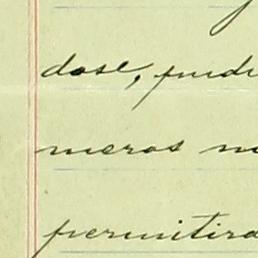 dose, pudi
meros
permitira